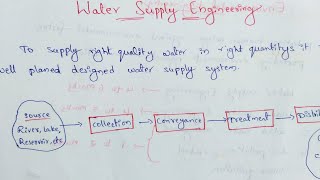 Water Supply Engineering
To supply right quality water in right quantity, it
well planed designed water supply system.
Source
River, Lake,
Reservoir, etc
collection
Conveyance
treatment